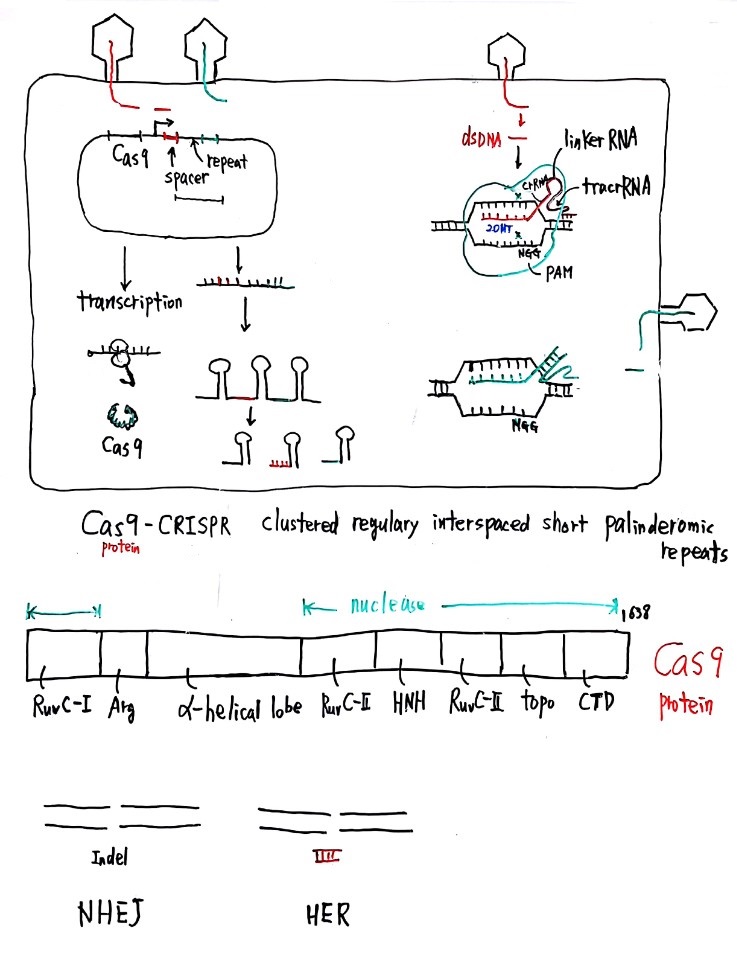 dsDNA
linkerRNA
Cas9
repeat
spacer
crRNA
tracrRNA
20NT
NGG
PAM
transcription
Cas9
NGG
Cas9-CRISPR clustered regulary interspaced short palinderomic
protein
repeats
nuclease
Cas9
protein
RuvC-I Arg α-helical lobe RuvC-II HNH RuvC-II topo CTD
Indel
NHEJ HER